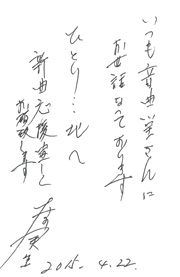 いつも音曲堂さんに
お世話になっております
ひとり…北へ
新曲応援宜しく
お願い致します
2015.4.22.